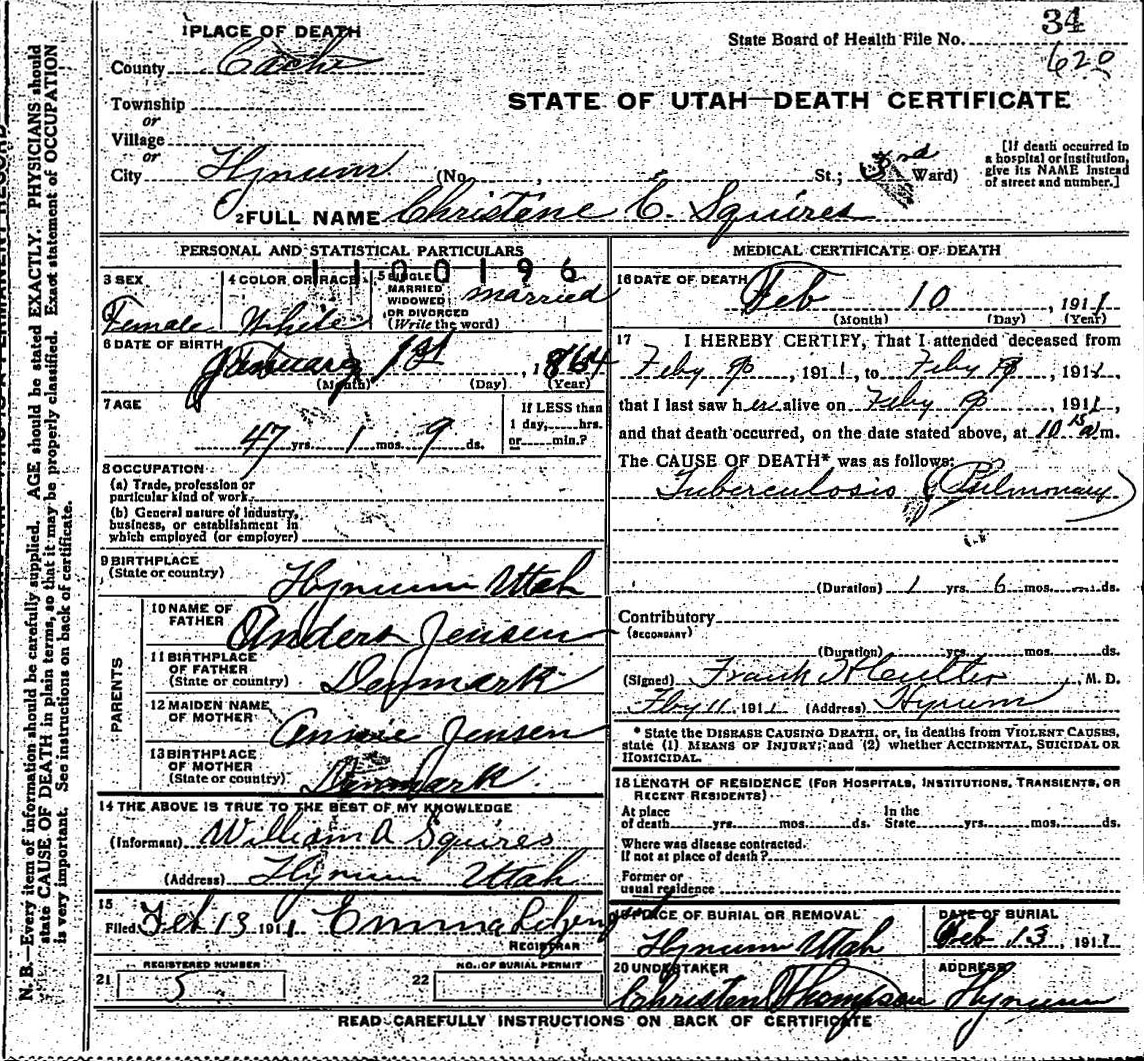 1 PLACE OF DEATH
County Cache
Township
or
Village
or
City Hyrum (No. , St.; 3rd Ward)
State Board of Health File No. 34
620
STATE OF UTAH—DEATH CERTIFICATE
[If death occurred in
a hospital or institution,
give its NAME instead
of street and number.]
2 FULL NAME Christine C. Squires
PERSONAL AND STATISTICAL PARTICULARS
1100196
3 SEX
Female
4 COLOR OR RACE
White
5 SINGLE
MARRIED
WIDOWED
OR DIVORCED
(Write the word)
married
6 DATE OF BIRTH
January 1st, 1864
(Month) (Day) (Year)
7 AGE
47 yrs. 1 mos. 9 ds.
If LESS than
1 day, hrs.
or min.?
8 OCCUPATION
(a) Trade, profession or
particular kind of work
(b) General nature of industry,
business, or establishment in
which employed (or employer)
9 BIRTHPLACE
(State or country)
Hyrum Utah
PARENTS
10 NAME OF
FATHER
Anders Jensen
11 BIRTHPLACE
OF FATHER
(State or country)
Denmark
12 MAIDEN NAME
OF MOTHER
Annie Jensen
13 BIRTHPLACE
OF MOTHER
(State or country)
Denmark
14 THE ABOVE IS TRUE TO THE BEST OF MY KNOWLEDGE
(Informant) William A Squires
(Address) Hyrum Utah
15
Filed Feb 13 1911 Emma
REGISTRAR
REGISTERED NUMBER
21 5
NO. OF BURIAL PERMIT
22
MEDICAL CERTIFICATE OF DEATH
16 DATE OF DEATH
Feb 10, 1911
(Month) (Day) (Year)
17 I HEREBY CERTIFY, That I attended deceased from
Feby 9, 1911, to Feby 9, 1911
that I last saw her alive on Feby 9, 1911,
and that death occurred, on the date stated above, at 10 15 a m.
The CAUSE OF DEATH* was as follows:
Tuberculosis (Pulmonary)
(Duration) 1 yrs. 6 mos. ds.
Contributory
(SECONDARY)
(Duration) yrs. mos. ds.
(Signed) Frank, M. D.
Feby 11, 1911 (Address) Hyrum
* State the DISEASE CAUSING DEATH, or, in deaths from VIOLENT CAUSES,
state (1) MEANS OF INJURY; and (2) whether ACCIDENTAL, SUICIDAL OR
HOMICIDAL.
18 LENGTH OF RESIDENCE (FOR HOSPITALS, INSTITUTIONS, TRANSIENTS, OR
RECENT RESIDENTS)
At place
of death yrs. mos. ds.
In the
State yrs. mos. ds.
Where was disease contracted
If not at place of death?
Former or
usual residence
PLACE OF BURIAL OR REMOVAL
Hyrum Utah
DATE OF BURIAL
Feb 13, 1911
20 UNDERTAKER
Christen Thompson
ADDRESS
Hyrum
READ CAREFULLY INSTRUCTIONS ON BACK OF CERTIFICATE
N. B.—Every item of information should be carefully supplied. AGE should be stated EXACTLY. PHYSICIANS should
state CAUSE OF DEATH in plain terms, so that it may be properly classified. Exact statement of OCCUPATION
is very important. See instructions on back of certificate.